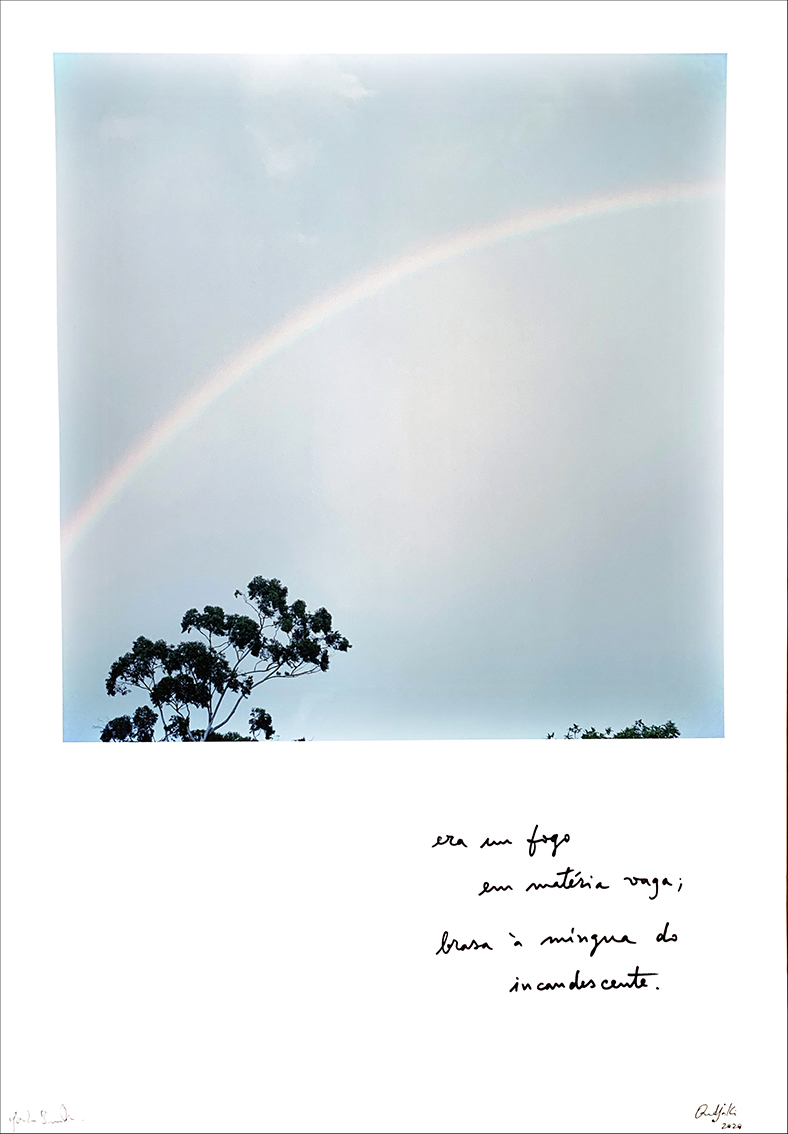 era um fogo
em matéria vaga;
brasa à míngua do
incandescente.
2024